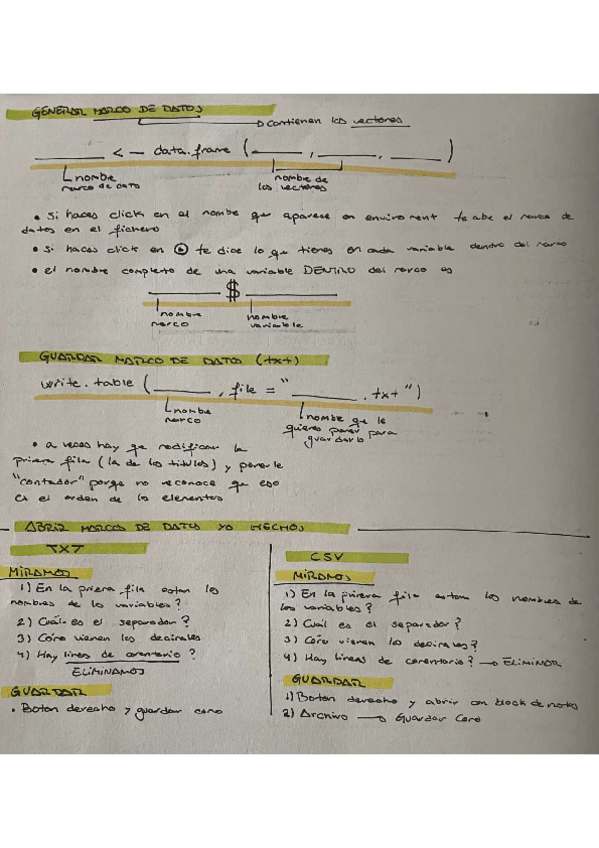 GENERAR MARCO DE DATOS
→ contienen los vectores
______ <- data.frame (______, ______, ______)
nombre marco de dato
nombre de los vectores
• si haces click en el nombre que aparece en enviroment te abe el marco de
datos en el fichero
• si haces click en ▶ te dice lo que tienes en cada variable dentro del marco
• el nombre completo de una variable DENTRO del marco es
______ $ ______
nombre marco
nombre variable
GUARDAR MARCO DE DATO (txt)
write.table (______, file = "______.txt")
nombre marco
nombre que le quieres poner para guardarlo
• a veces hay que modificar la
primera fila (la de los titulos) y ponerle
"contador" porque no reconoce que eso
es el orden de los elementos
ABRIR MARCOS DE DATOS YA HECHOS
TXT
MIRAMOS
1) En la primera fila estan los
nombres de las variables?
2) Cuál es el separador?
3) Cómo vienen los decimales
4) Hay lineas de comentario?
ELIMINAMOS
GUARDAR
• Boton derecho y guardar como
CSV
MIRAMOS
1) En la primera fila estan los nombres de
las variables?
2) Cual es el separador?
3) Cómo vienen los decimales?
4) Hay lineas de comentario? → ELIMINAR
GUARDAR
1) Boton derecho y abrir con block de notas
2) Archivo → Guardar Como